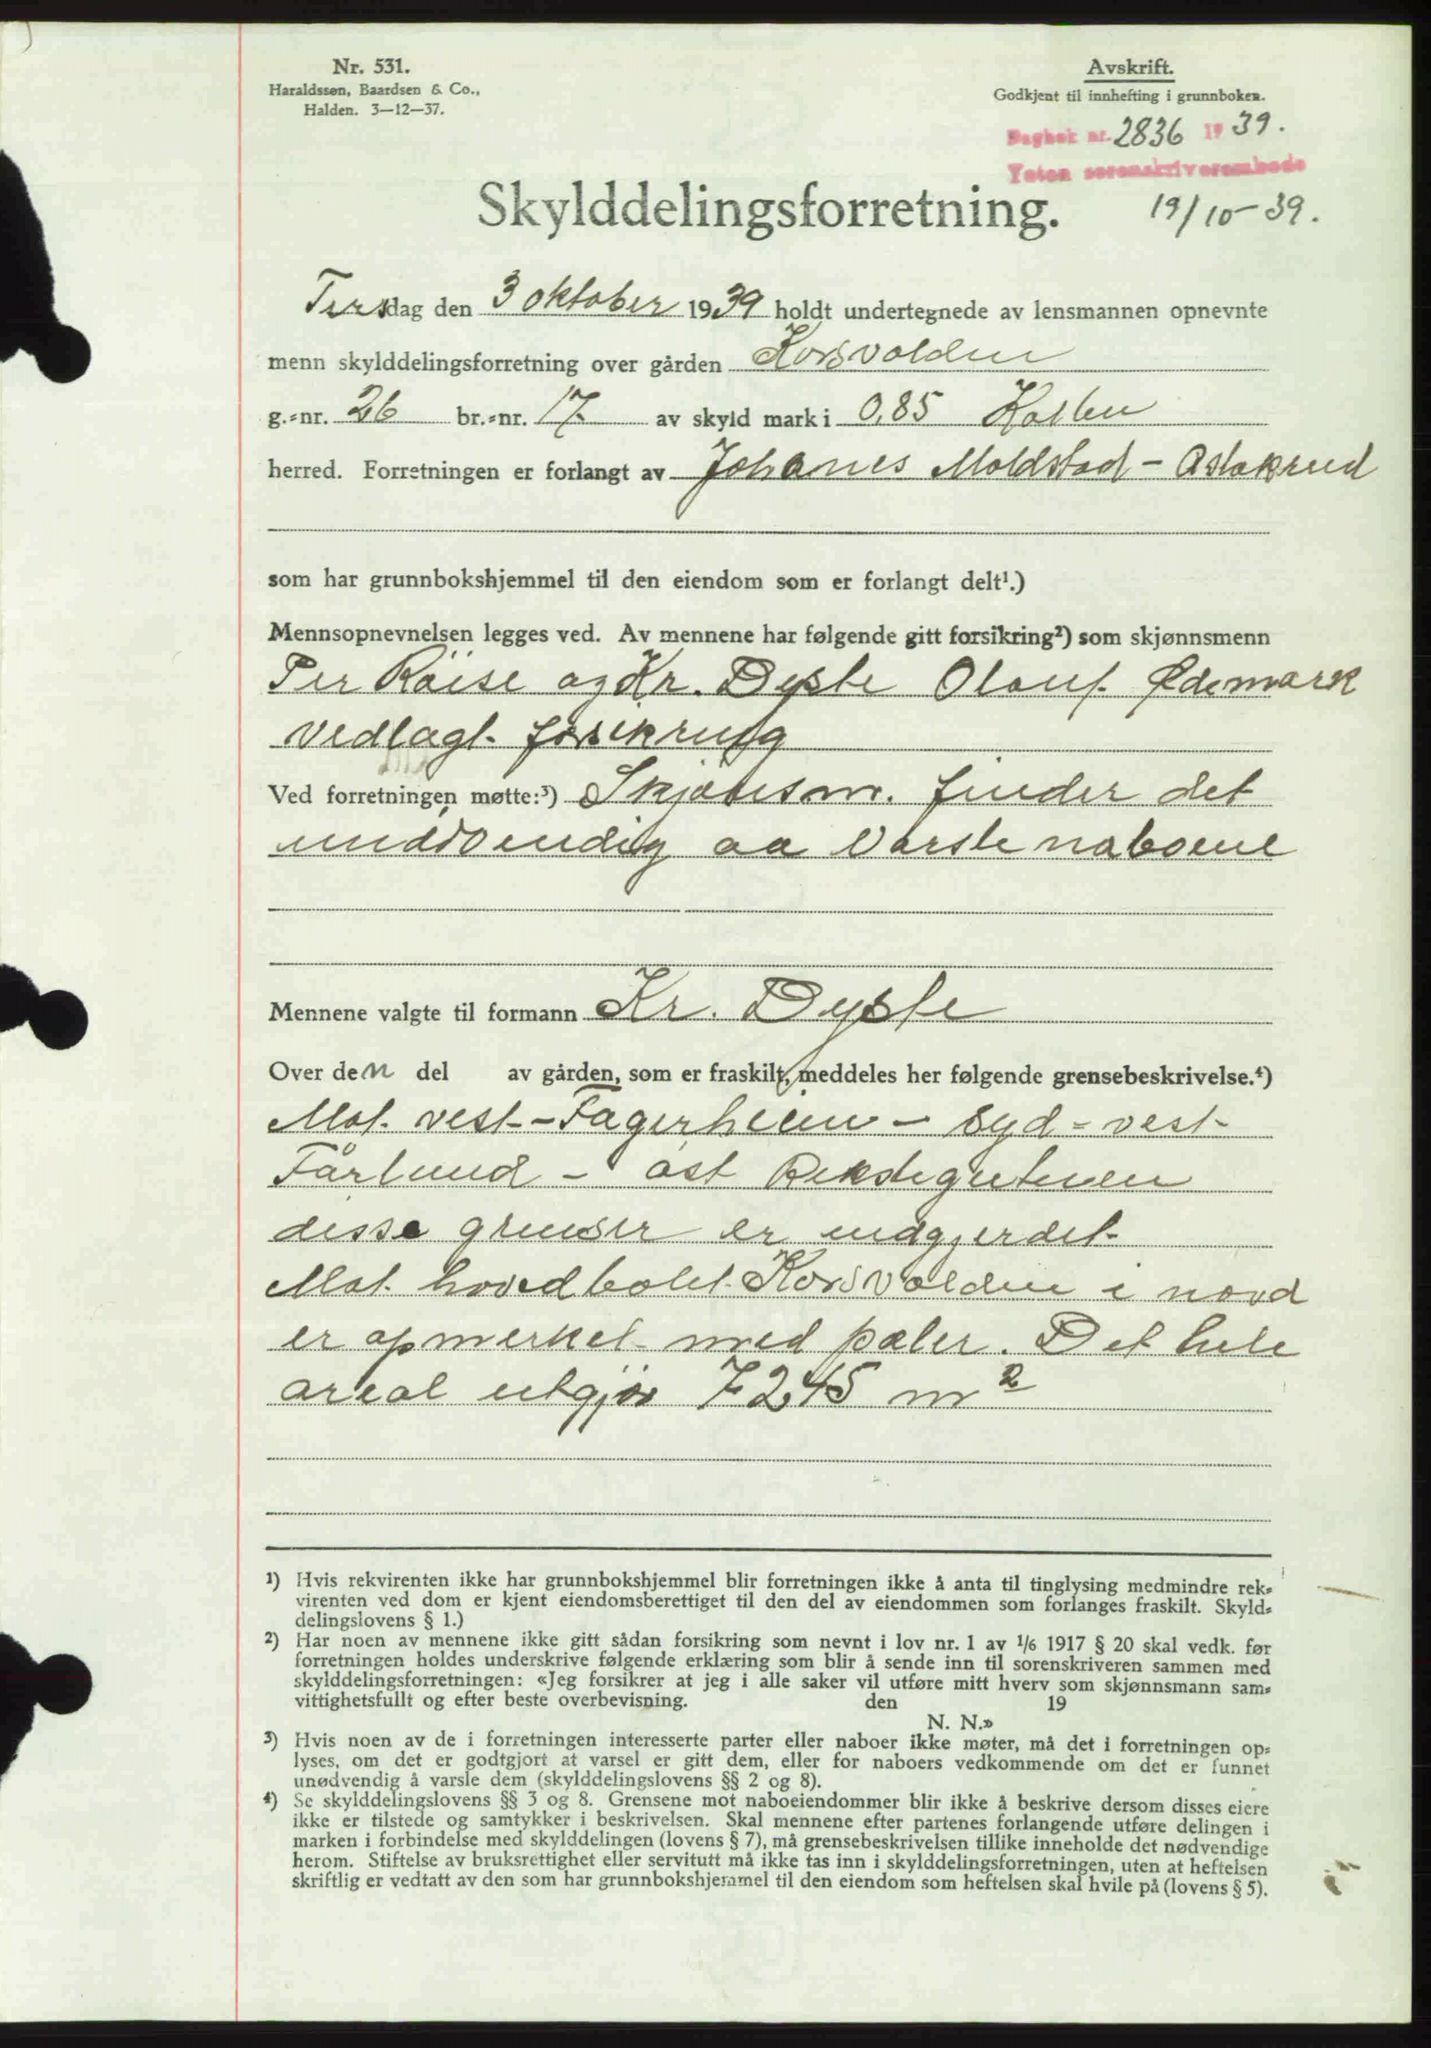 Nr. 531.
Haraldssen, Baardsen & Co.,
Halden. 3—12—37.
Avskrift.
Godkjent til innhefting i grunnboken.
Dagbok nr. 2836 1939.
Toten sorenskriverembede
19/10-39.
Skylddelingsforretning.
Tirsdag den 3 oktober 1939 holdt undertegnede av lensmannen opnevnte
menn skylddelingsforretning over gården Korsvolden
g.=nr. 26 br.=nr. 17. av skyld mark i 0,85 Kolbu
herred. Forretningen er forlangt av Johanes Moldstad - Aslakrud
som har grunnbokshjemmel til den eiendom som er forlangt delt¹.)
Mennsopnevnelsen legges ved. Av mennene har følgende gitt forsikring²) som skjønnsmenn
Per Röise og Kr. Dyste Olauf. Ødemark
vedlagt forsikring
Ved forretningen møtte:³) Skjönsm. finder det
unödvendig aa varsle naboene
Mennene valgte til formann Kr. Dyste
Over den del av gården, som er fraskilt, meddeles her følgende grensebeskrivelse.⁴)
Mot vest - Fagerheim - syd = vest
Fårlund - öst
disse grenser er indgjerdet
Mot hovedbolet Korsvolden i nord
er opmerket med pæler. Det hele
areal utgjör 7245 m²
¹) Hvis rekvirenten ikke har grunnbokshjemmel blir forretningen ikke å anta til tinglysing medmindre rek=
virenten ved dom er kjent eiendomsberettiget til den del av eiendommen som forlanges fraskilt. Skyld=
delingslovens § 1.)
²) Har noen av mennene ikke gitt sådan forsikring som nevnt i lov nr. 1 av 1/6 1917 § 20 skal vedk. før
forretningen holdes underskrive følgende erklæring som blir å sende inn til sorenskriveren sammen med
skylddelingsforretningen: «Jeg forsikrer at jeg i alle saker vil utføre mitt hverv som skjønnsmann sam=
vittighetsfullt og efter beste overbevisning. den 19
N. N.»
³) Hvis noen av de i forretningen interesserte parter eller naboer ikke møter, må det i forretningen op=
lyses, om det er godtgjort at varsel er gitt dem, eller for naboers vedkommende om det er funnet
unødvendig å varsle dem (skylddelingslovens §§ 2 og 8).
⁴) Se skylddelingslovens §§ 3 og 8. Grensene mot naboeiendommer blir ikke å beskrive dersom disses eiere
ikke er tilstede og samtykker i beskrivelsen. Skal mennene efter partenes forlangende utføre delingen i
marken i forbindelse med skylddelingen (lovens § 7), må grensebeskrivelsen tillike inneholde det nødvendige
herom. Stiftelse av bruksrettighet eller servitutt må ikke tas inn i skylddelingsforretningen, uten at heftelsen
skriftlig er vedtatt av den som har grunnbokshjemmel til den eiendom som heftelsen skal hvile på (lovens § 5).